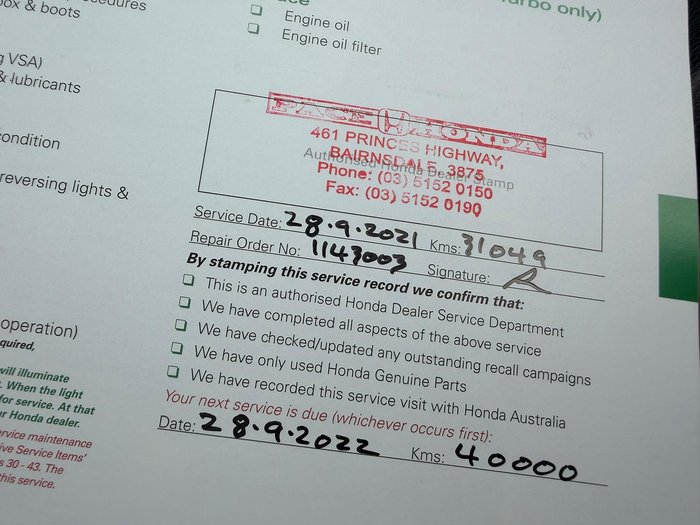 ox & boots
g VSA)
& lubricants
condition
reversing lights &
operation)
quired,
will illuminate
. When the light
for service. At that
r Honda dealer.
ervice maintenance
ive Service Items'
s 30 - 43. The
this service.
urbo only)
Engine oil
Engine oil filter
PACE HONDA
461 PRINCES HIGHWAY,
BAIRNSDALE, 3875
Authorised Honda Dealer Stamp
Phone: (03) 5152 0150
Fax: (03) 5152 0190
Service Date: 28.9.2021 Kms: 31049
Repair Order No: 1143003 Signature:
By stamping this service record we confirm that:
This is an authorised Honda Dealer Service Department
We have completed all aspects of the above service
We have checked/updated any outstanding recall campaigns
We have only used Honda Genuine Parts
We have recorded this service visit with Honda Australia
Your next service is due (whichever occurs first):
Date: 28.9.2022 Kms: 40000